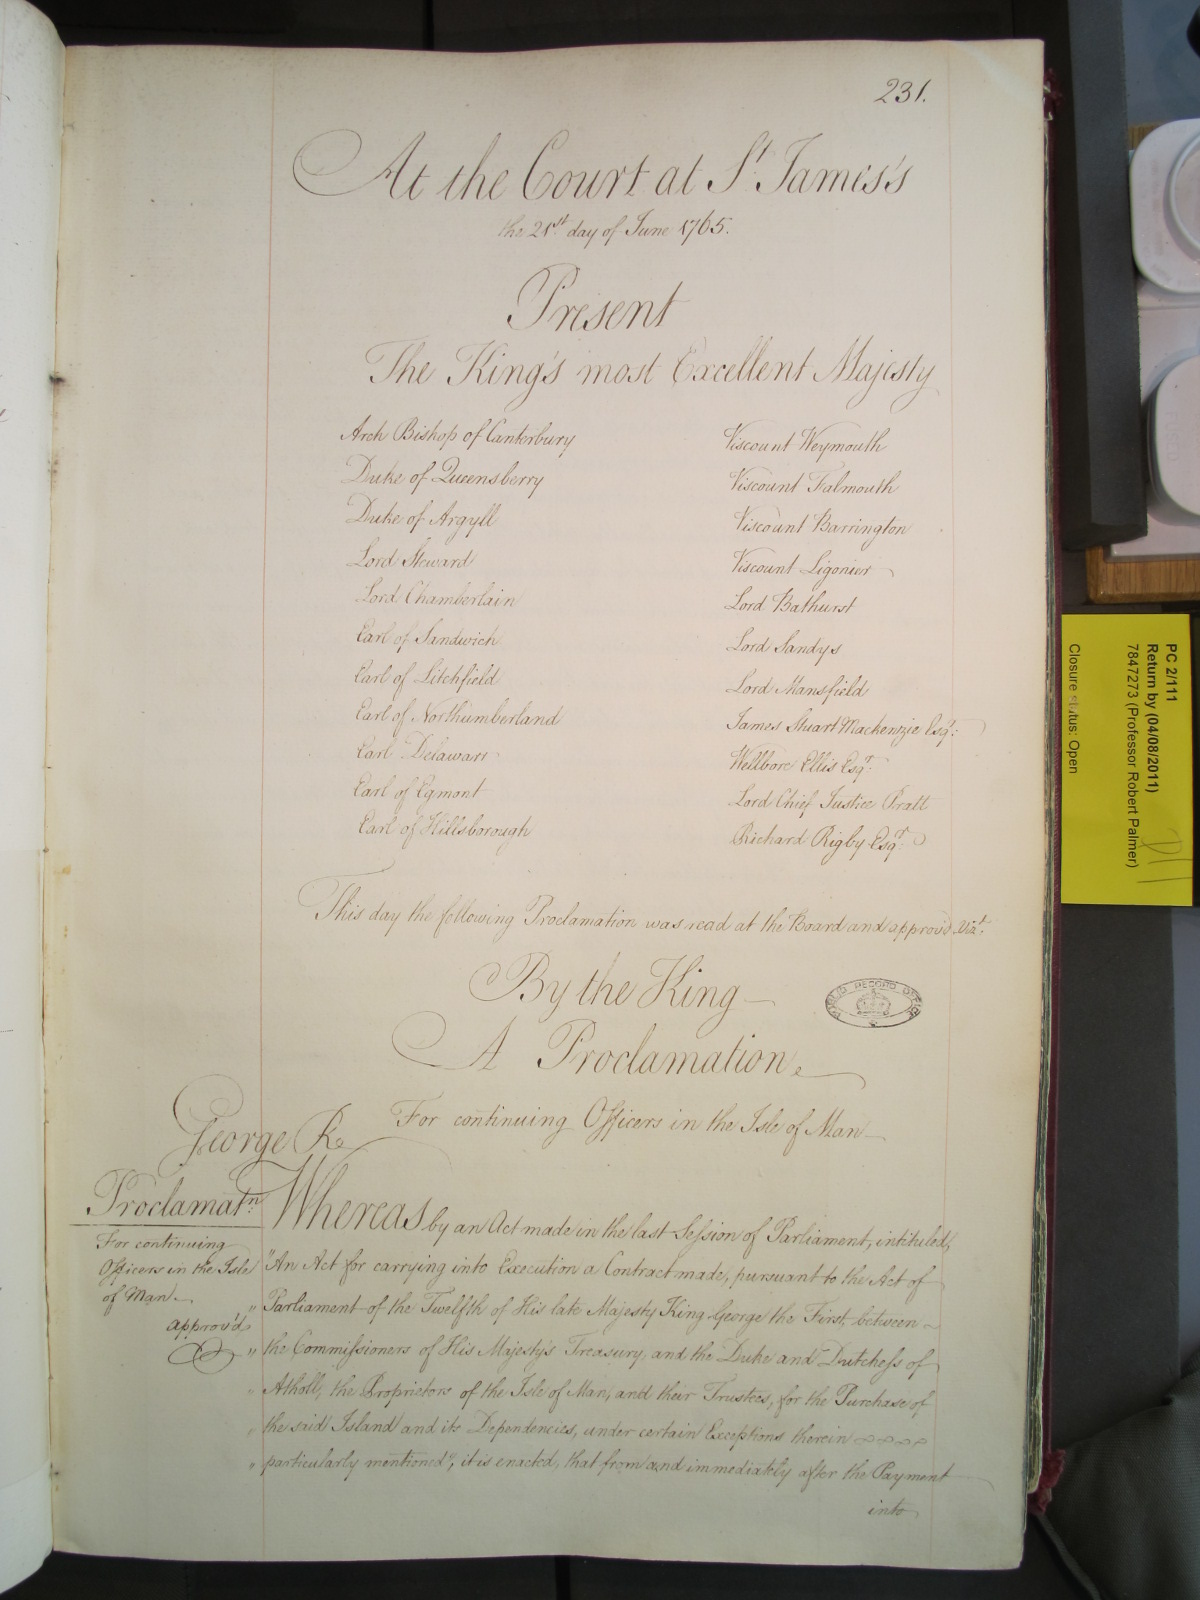 231.
At the Court at St. James's
the 21st. day of June 1765.
Present
The King's most Excellent Majesty
Arch Bishop of Canterbury
Duke of Queensberry
Duke of Argyll
Lord Steward
Lord Chamberlain
Earl of Sandwich
Earl of Litchfield
Earl of Northumberland
Earl Delawarr
Earl of Egmont
Earl of Hillsborough
Viscount Weymouth
Viscount Falmouth
Viscount Barrington
Viscount Ligonier
Lord Bathurst
Lord Sandys
Lord Mansfield
James Stuart Mackenzie Esqr.
Wellbore Ellis Esqr.
Lord Chief Justice Pratt
Richard Rigby Esqr.
This day the following Proclamation was read at the Board and approv'd Vizt.
By the King
PUBLIC RECORD OFFICE
A Proclamation
For continuing Officers in the Isle of Man
George R.
Proclamatn.
For continuing
Officers in the Isle
of Man.
approv'd
Whereas by an Act made in the last Session of Parliament, intituled,
"An Act for carrying into Execution a Contract made, pursuant to the Act of
" Parliament of the Twelfth of His late Majesty King George the First, between
" the Commissioners of His Majesty's Treasury, and the Duke and Dutchess of
" Atholl, the Proprietors of the Isle of Man, and their Trustees, for the Purchase of
" the said Island and its Dependencies, under certain Exceptions therein
" particularly mentioned", it is enacted, that from and immediately after the Payment
into
PC 2/111
Return by (04/08/2011)
7847273 (Professor Robert Palmer)
Closure status: Open